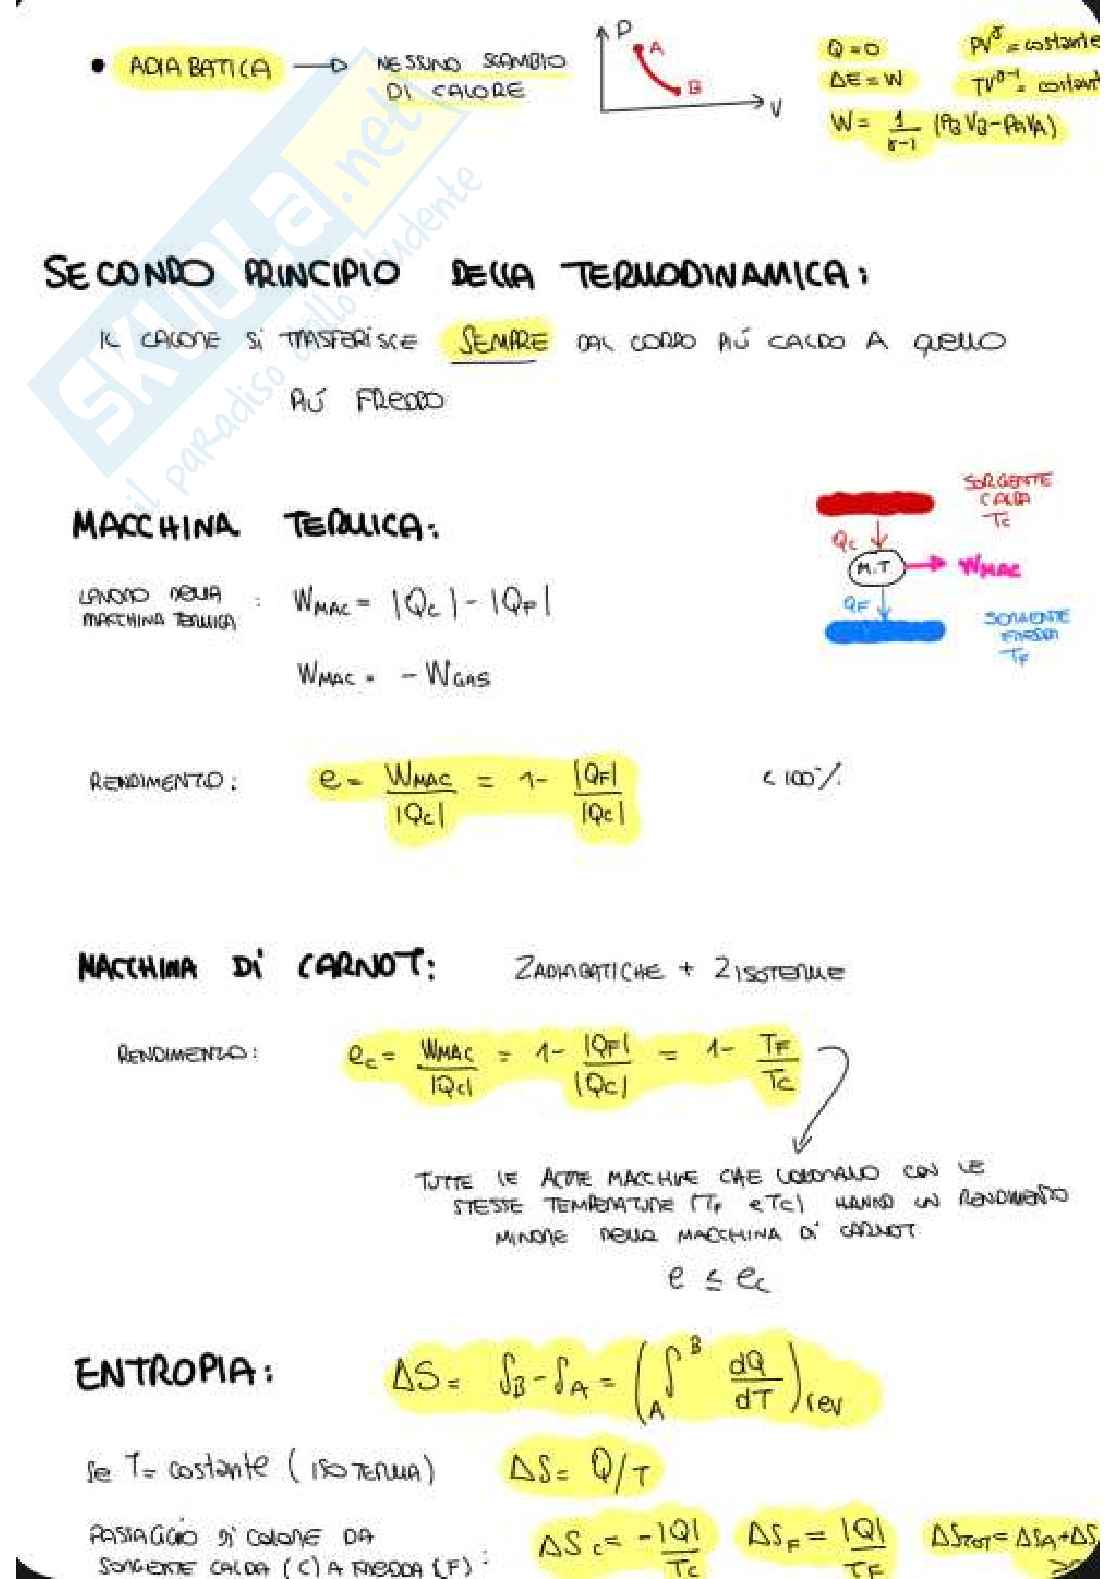 • ADIABATICA → NESSUNO SCAMBIO DI CALORE
P
A
B
V
Q = 0
ΔE = W
W = 1/(γ-1) (PB VB - PA VA)
PV^γ = costante
TV^γ-1 = costant
SKUOLA.net
il paradiso dello studente
SECONDO PRINCIPIO DELLA TERMODINAMICA:
IL CALORE Si TRASFERISCE SEMPRE DAL CORPO PIÚ CALDO A QUELLO
PIÚ FREDDO
MACCHINA TERMICA:
SORGENTE
CALDA
Tc
Qc
M.T
WMAC
QF
SORGENTE
FREDDA
TF
LAVORO DELLA
MACCHINA TERMICA : WMAC = |Qc| - |QF|
WMAC = - WGAS
RENDIMENTO: e = WMAC/|Qc| = 1- |QF|/|Qc| < 100%
MACCHINA Di CARNOT: 2 ADIABATICHE + 2 ISOTERME
RENDIMENTO: ec = WMAC/|Qc| = 1- |QF|/|Qc| = 1- TF/Tc
TUTTE LE ALTRE MACCHINE CHE LAVORANO CON LE
STESSE TEMPERATURE (TF e Tc) HANNO UN RENDIMENTO
MINORE DELLA MACCHINA Di CARNOT
e ≤ ec
ENTROPIA: ΔS = SB - SA = (A∫B dQ/dT)rev
Se T = costante (ISOTERMA) ΔS = Q/T
PASSAGGIO Di CALORE DA
SORGENTE CALDA (C) A FREDDA (F): ΔSc = -|Q|/Tc ΔSF = |Q|/TF ΔSTOT = ΔSA + ΔS